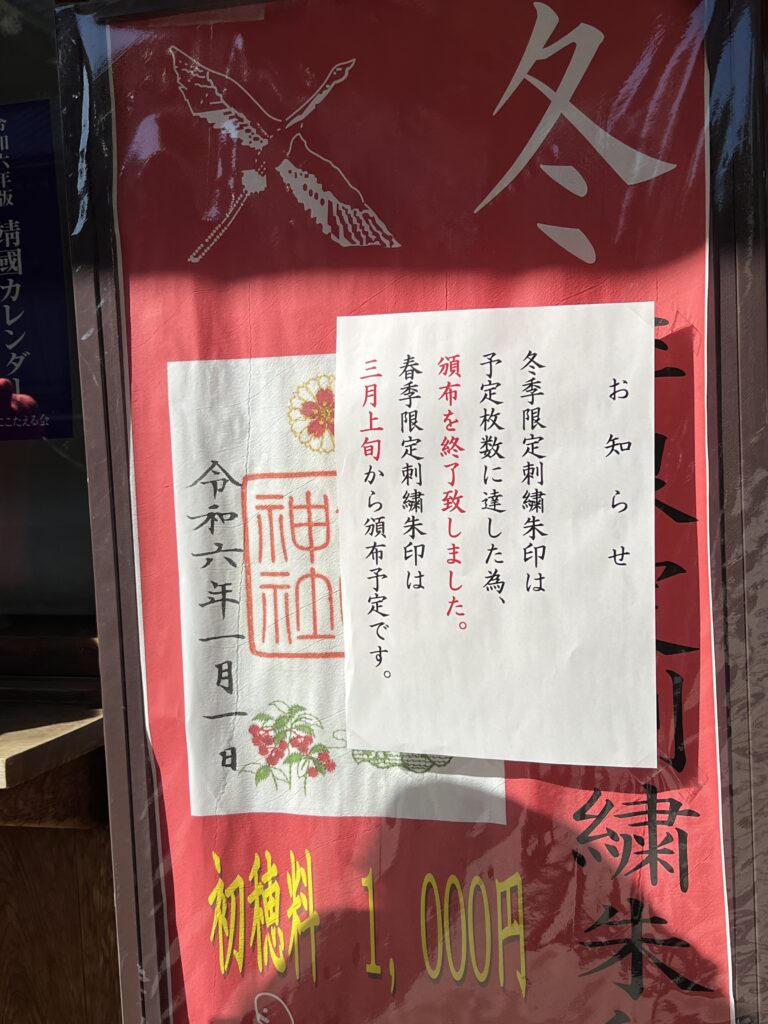 冬季限定刺繍朱
お知らせ
冬季限定刺繍朱印は
予定枚数に達した為、
頒布を終了致しました。
春季限定刺繍朱印は
三月上旬から頒布予定です。
神社
令和六年一月一日
初穂料 1,000円
令和六年版
靖國カレンダー
にこたえる会